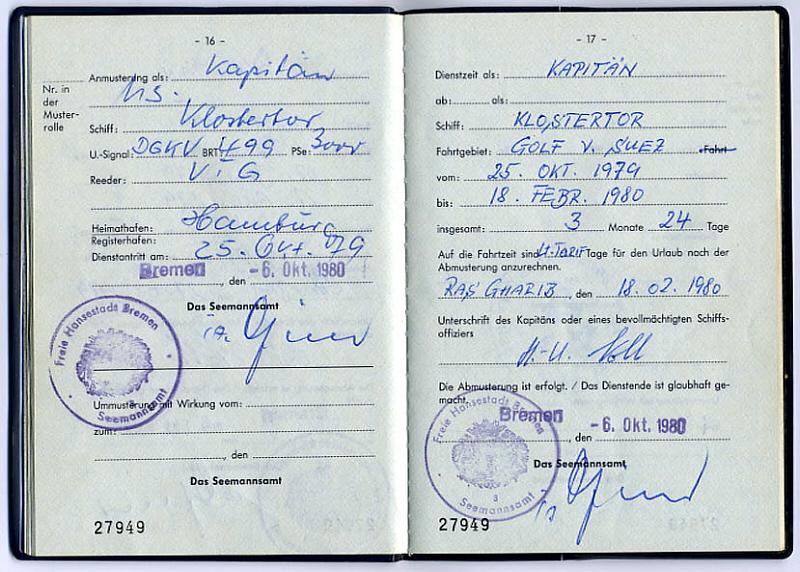 - 16 -
Anmusterung als: Kapitän
Nr. in
der
Muster-
rolle
MS.
Schiff: Klostertor
U.-Signal: DGKV BRT: 499 PSe: 3000
Reeder: V. G
Heimathafen: Hamburg
Registerhafen:
Dienstantritt am: 25. Okt. 79
Bremen, den -6. Okt. 1980
Das Seemannsamt
i.A.
Freie Hansestadt Bremen
Seemannsamt
3
Ummusterung mit Wirkung vom:
zum:
, den
Das Seemannsamt
27949
- 17 -
Dienstzeit als: KAPITÄN
ab: als:
Schiff: KLOSTERTOR
Fahrtgebiet: GOLF V. SUEZ -Fahrt
vom: 25. OKT. 1979
bis: 18. FEBR. 1980
insgesamt: 3 Monate 24 Tage
Auf die Fahrtzeit sind lt. TARIF Tage für den Urlaub noch der
Abmusterung anzurechnen.
RAS GHARIB, den 18.02.1980
Unterschrift des Kapitäns oder eines bevollmächtigten Schiffs-
offiziers
Die Abmusterung ist erfolgt. / Das Dienstende ist glaubhaft ge-
macht.
Bremen, den -6. Okt. 1980
Freie Hansestadt Bremen
Seemannsamt
3
Das Seemannsamt
27949